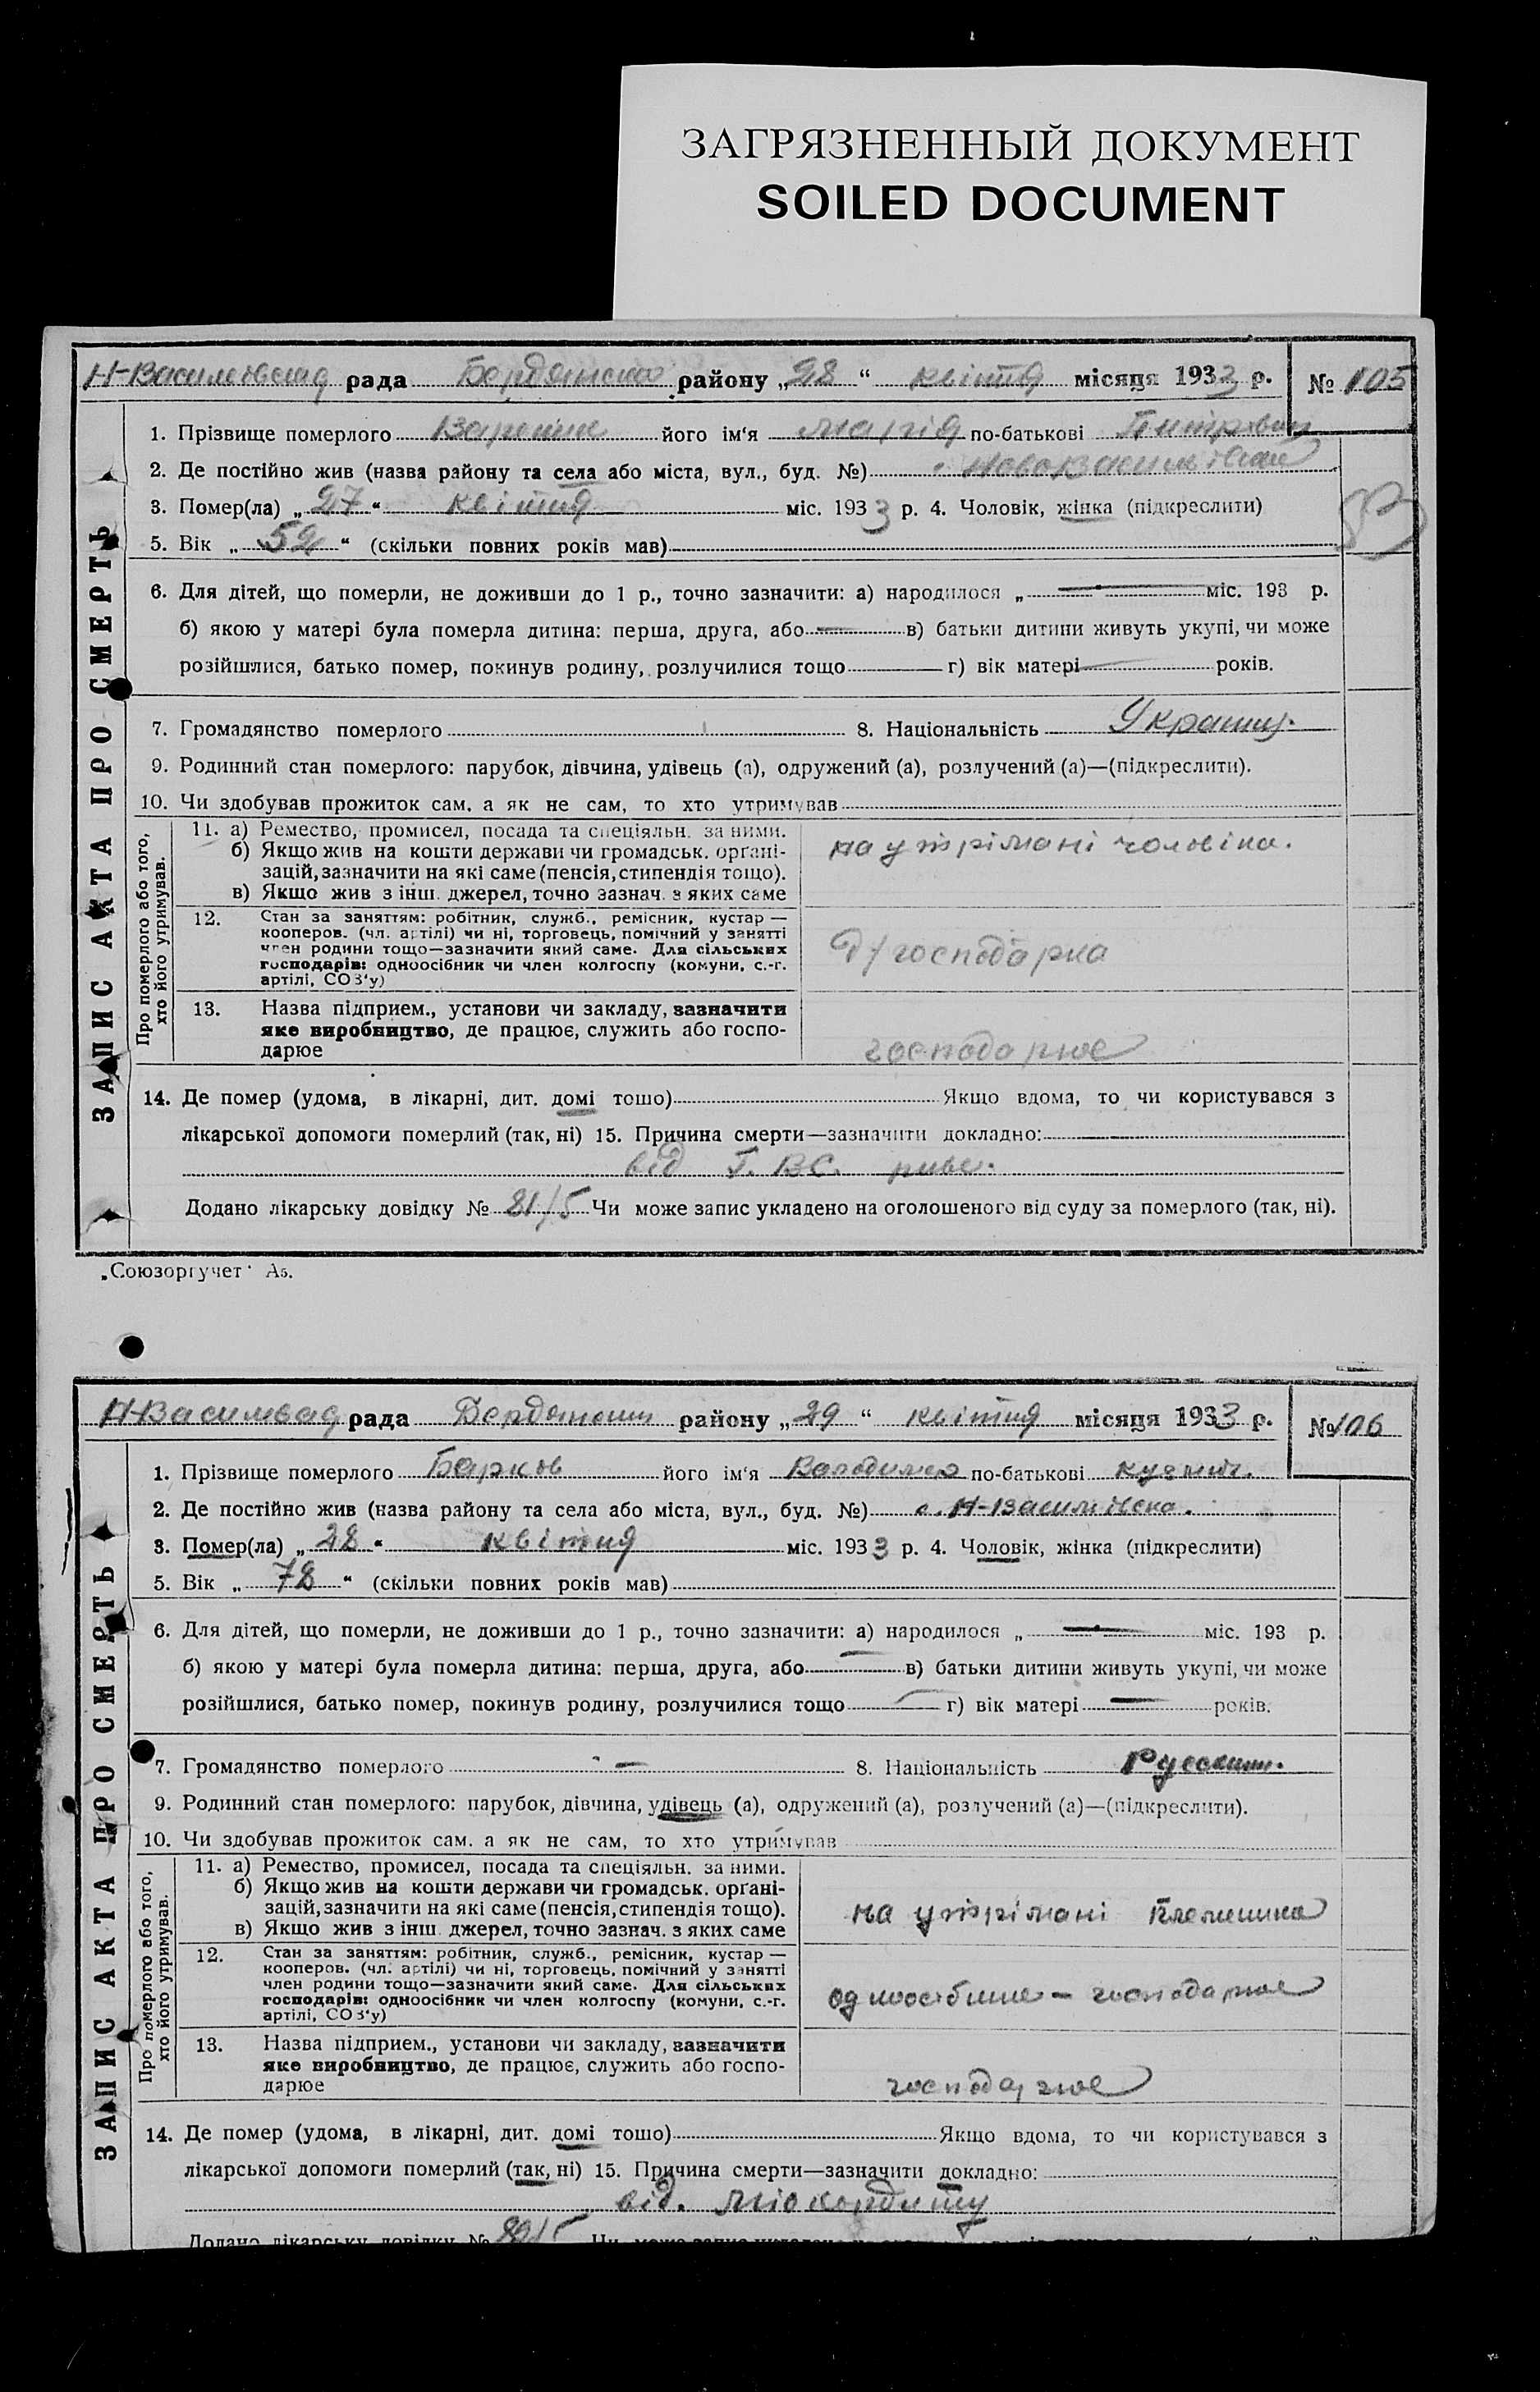 ЗАГРЯЗНЕННЫЙ ДОКУМЕНТ
SOILED DOCUMENT
рада району „28“ квітня місяця 1933 р. № 105
ЗАПИС АКТА ПРО СМЕРТЬ
1. Прізвище померлого його ім‘я Марія по-батькові
2. Де постійно жив (назва району та села або міста, вул., буд. №)
3. Помер(ла) „27“ квітня міс. 1933 р. 4. Чоловік, жінка (підкреслити)
5. Вік „52“ (скільки повних років мав)
6. Для дітей, що померли, не доживши до 1 р., точно зазначити: а) народилося „ “ міс. 193 р.
б) якою у матері була померла дитина: перша, друга, або в) батьки дитини живуть укупі, чи може
розійшлися, батько помер, покинув родину, розлучилися тощо г) вік матері років.
7. Громадянство померлого 8. Національність Украинц.
9. Родинний стан померлого: парубок, дівчина, удівець (а), одружений (а), розлучений (а)—(підкреслити).
10. Чи здобував прожиток сам, а як не сам, то хто утримував
Про померлого або того, хто його утримував.
11. а) Ремество, промисел, посада та спеціяльн. за ними.
б) Якщо жив на кошти держави чи громадськ. орґані-
зацій, зазначити на які саме (пенсія, стипендія тощо).
в) Якщо жив з інш. джерел, точно зазнач. з яких саме
на утрімані чоловіка.
12. Стан за заняттям: робітник, служб., ремісник, кустар —
кооперов. (чл. артілі) чи ні, торговець, помічний у занятті
член родини тощо—зазначити який саме. Для сільських
господарів: одноосібник чи член колгоспу (комуни, с.-г.
артілі, СОЗ‘у)
Д/господарка
13. Назва підприєм., установи чи закладу, зазначити
яке виробництво, де працює, служить або госпо-
дарює
господарює
14. Де помер (удома, в лікарні, дит. домі тощо) Якщо вдома, то чи користувався з
лікарської допомоги померлий (так, ні) 15. Причина смерти—зазначити докладно:
від
Додано лікарську довідку № 81/5 Чи може запис укладено на оголошеного від суду за померлого (так, ні).
„Союзоргучет“ А5.
рада району „29“ квітня місяця 1933 р. №106
ЗАПИС АКТА ПРО СМЕРТЬ
1. Прізвище померлого Барков його ім‘я по-батькові Кузмич.
2. Де постійно жив (назва району та села або міста, вул., буд. №) с. Н-Василівка.
3. Помер(ла) „28“ квітня міс. 1933 р. 4. Чоловік, жінка (підкреслити)
5. Вік „78“ (скільки повних років мав)
6. Для дітей, що померли, не доживши до 1 р., точно зазначити: а) народилося „ “ міс. 193 р.
б) якою у матері була померла дитина: перша, друга, або в) батьки дитини живуть укупі, чи може
розійшлися, батько помер, покинув родину, розлучилися тощо г) вік матері років.
7. Громадянство померлого — 8. Національність
9. Родинний стан померлого: парубок, дівчина, удівець (а), одружений (а), розлучений (а)—(підкреслити).
10. Чи здобував прожиток сам, а як не сам, то хто утримував
Про померлого або того, хто його утримував.
11. а) Ремество, промисел, посада та спеціяльн. за ними.
б) Якщо жив на кошти держави чи громадськ. орґані-
зацій, зазначити на які саме (пенсія, стипендія тощо).
в) Якщо жив з інш. джерел, точно зазнач. з яких саме
на утрімані племінника
12. Стан за заняттям: робітник, служб., ремісник, кустар —
кооперов. (чл. артілі) чи ні, торговець, помічний у занятті
член родини тощо—зазначити який саме. Для сільських
господарів: одноосібник чи член колгоспу (комуни, с.-г.
артілі, СОЗ‘у)
господарює
13. Назва підприєм., установи чи закладу, зазначити
яке виробництво, де працює, служить або госпо-
дарює
господарює
14. Де помер (удома, в лікарні, дит. домі тощо) Якщо вдома, то чи користувався з
лікарської допомоги померлий (так, ні) 15. Причина смерти—зазначити докладно:
від. Міокардиту
Додано лікарську довідку №